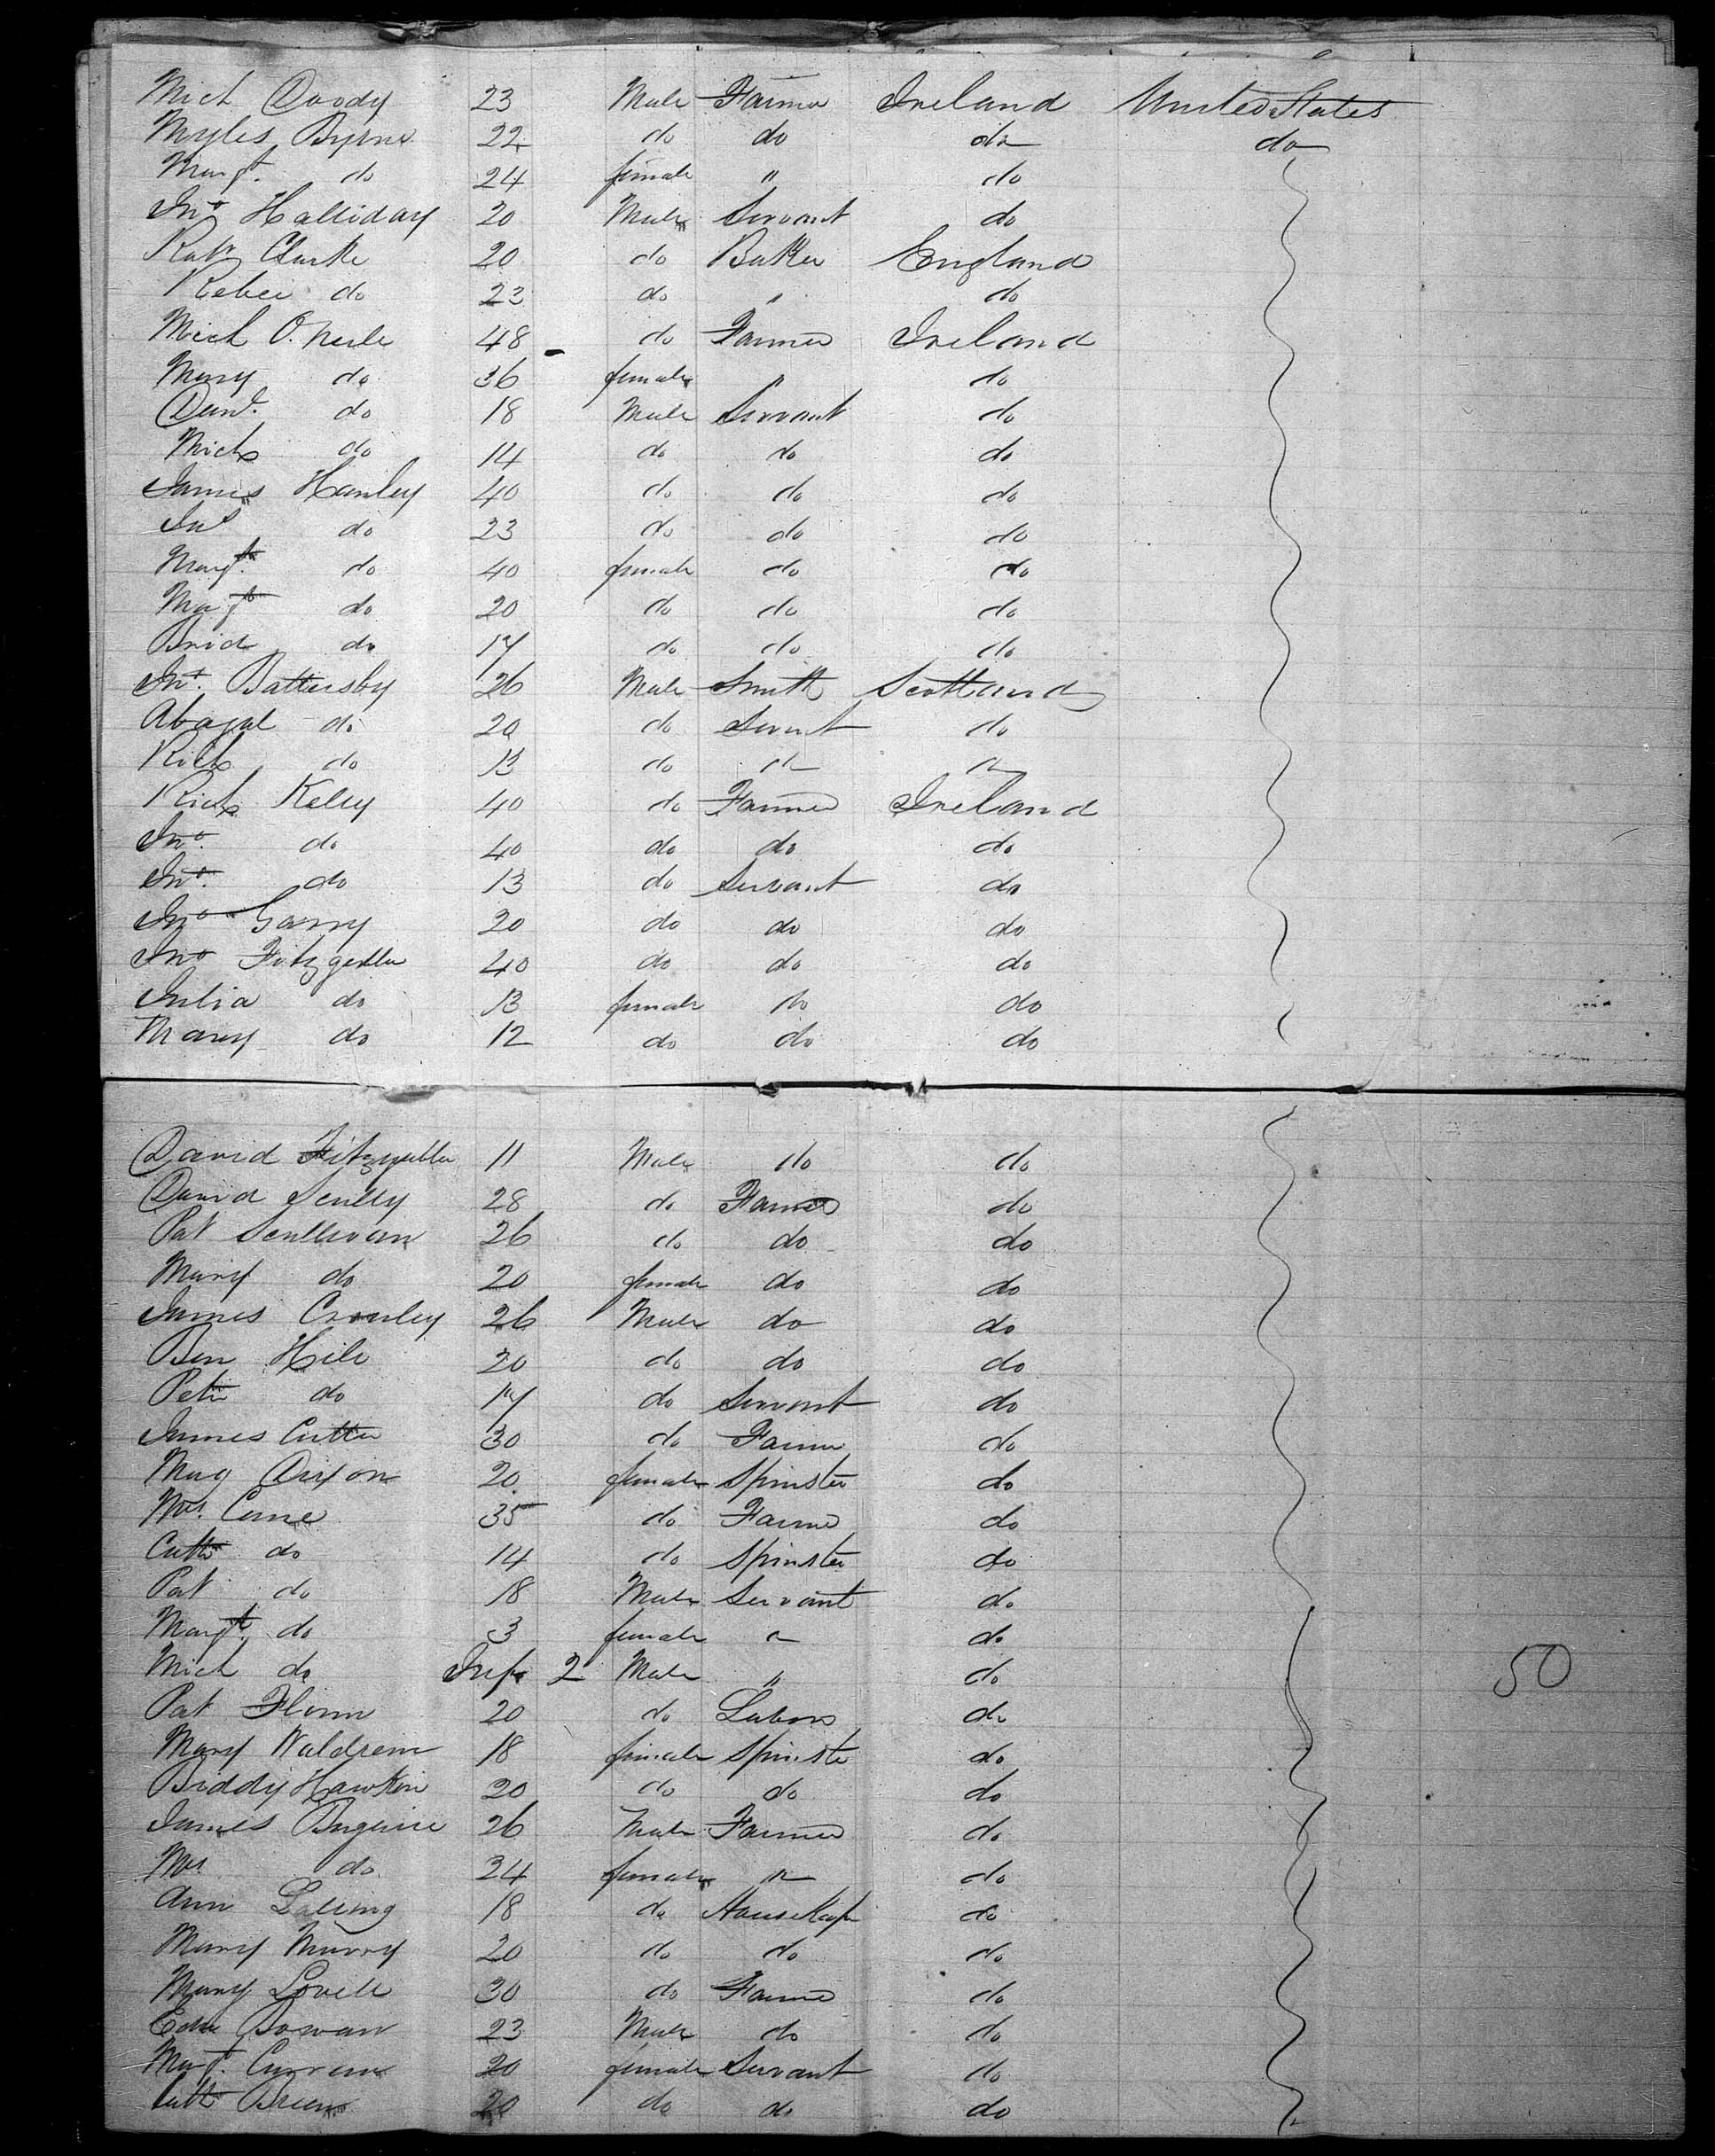 Mich Doody 23 Male Farmer Ireland United States
Myles Byrne 22 do do do do
Margt. do 24 female " do
Jno Halliday 20 Male Servant do
Robt Clarke 20 do Baker England
Rebec do 23 do " do
Mich O. Neile 48 do Farmer Ireland
Mary do 36 female " do
Danl. do 18 Male Servant do
Mich do 14 do do do
James Hanley 40 do do do
Jno do 23 do do do
Margt. do 40 female do do
Margt do 20 do do do
Brid do 17 do do do
Jno. Battersby 26 Male Smith Scotland
Abagal do 20 do Servt do
Rich do 13 do do do
Rich Kelly 40 do Farmer Ireland
Jno. do 40 do do do
Jno. do 13 do Servant do
Jno Garry 20 do do do
Jno 40 do do do
Julia do 13 female do do
Mary do 12 do do do
David 11 Male do do
David Scully 28 do Farmer do
Pat Scullivan 26 do do do
Mary do 20 female do do
James Cronley 26 Male do do
Ben Hill 20 do do do
Peter do 17 do Servant do
James Cutter 30 do Farmer do
Mag Dixon 20 female Spinster do
Mrs. Cane 35 do Farmer do
Cath do 14 do Spinster do
Pat do 18 Male Servant do
Margt. do 3 female " do
Mich do Inft 2 Male " do 50
Pat Flinn 20 do Labors do
Mary Waldren 18 female Spinster do
Biddy Hawkin 20 do do do
James 26 Male Farmer do
Mrs do 24 female " do
Ann 18 do HouseKeep do
Mary Murry 20 do do do
Mary Lovell 30 do Farmer do
Edw 23 Male do do
Margt. Curren 20 female Servant do
Cath Breen 20 do do do